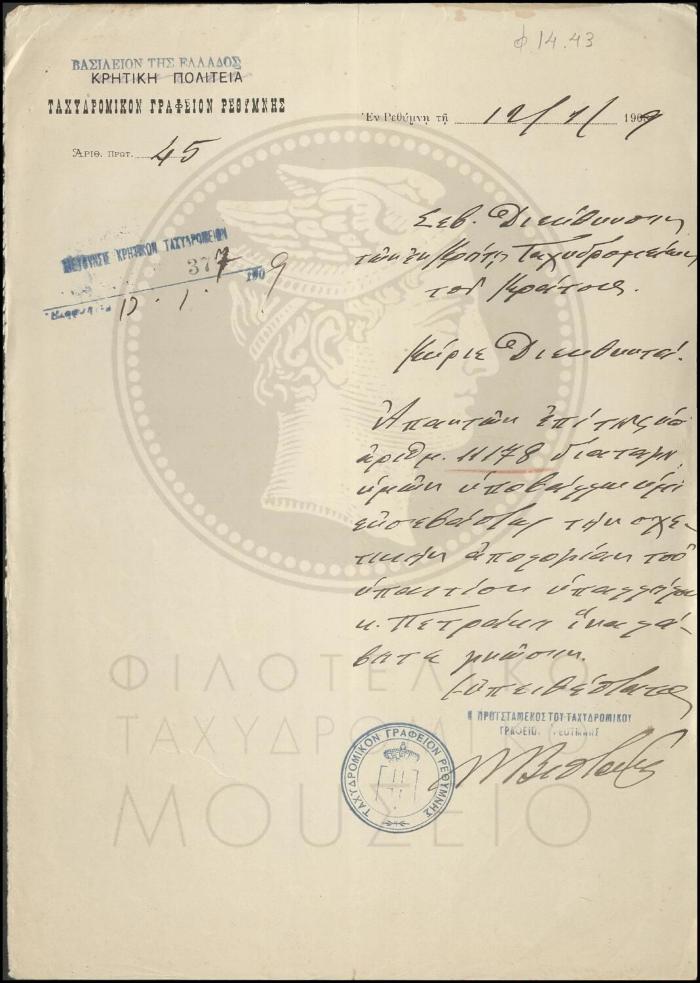 φ 14.43
ΒΑΣΙΛΕΙΟΝ ΤΗΣ ΕΛΛΑΔΟΣ
ΚΡΗΤΙΚΗ ΠΟΛΙΤΕΙΑ
ΤΑΧΥΔΡΟΜΙΚΟΝ ΓΡΑΦΕΙΟΝ ΡΕΘΥΜΝΗΣ
Ἐν Ρεθύμνῃ τῇ 12/1/1909
ΑΡΙΘ. ΠΡΩΤ. 45
ΔΙΕΥΘΥΝΣΙΣ ΚΡΗΤΙΚΩΝ ΤΑΧΥΔΡΟΜΕΙΩΝ
377 190 9
13.1.
Σεβ. Διεύθυνσιν
τῶν ἐν Κρήτῃ Ταχυδρομείων
τοῦ Κράτους.
Κύριε Διευθυντά!
Ἀπαντῶν ἐπὶ τῆς ὑπ
ἀριθμ. 11178 διαταγῆς
ὑμῶν ὑποβάλλω ὑμῖν
εὐσεβάστως τὴν σχε-
τικὴν ἀπολογίαν τοῦ
ὑπαιτίου ὑπαλλήλου
κ. Πετράκη ἵνα λά-
βητε γνῶσιν.
Εὐπειθέστατος
Ο ΠΡΟΪΣΤΑΜΕΝΟΣ ΤΟΥ ΤΑΧΥΔΡΟΜΙΚΟΥ
ΓΡΑΦΕΙΟΥ ΡΕΘΥΜΝΗΣ
ΤΑΧΥΔΡΟΜΙΚΟΝ ΓΡΑΦΕΙΟΝ ΡΕΘΥΜΝΗΣ
ΦΙΛΟΤΕΛΙΚΟ
ΤΑΧΥΔΡΟΜΙΚΟ
ΜΟΥΣΕΙΟ